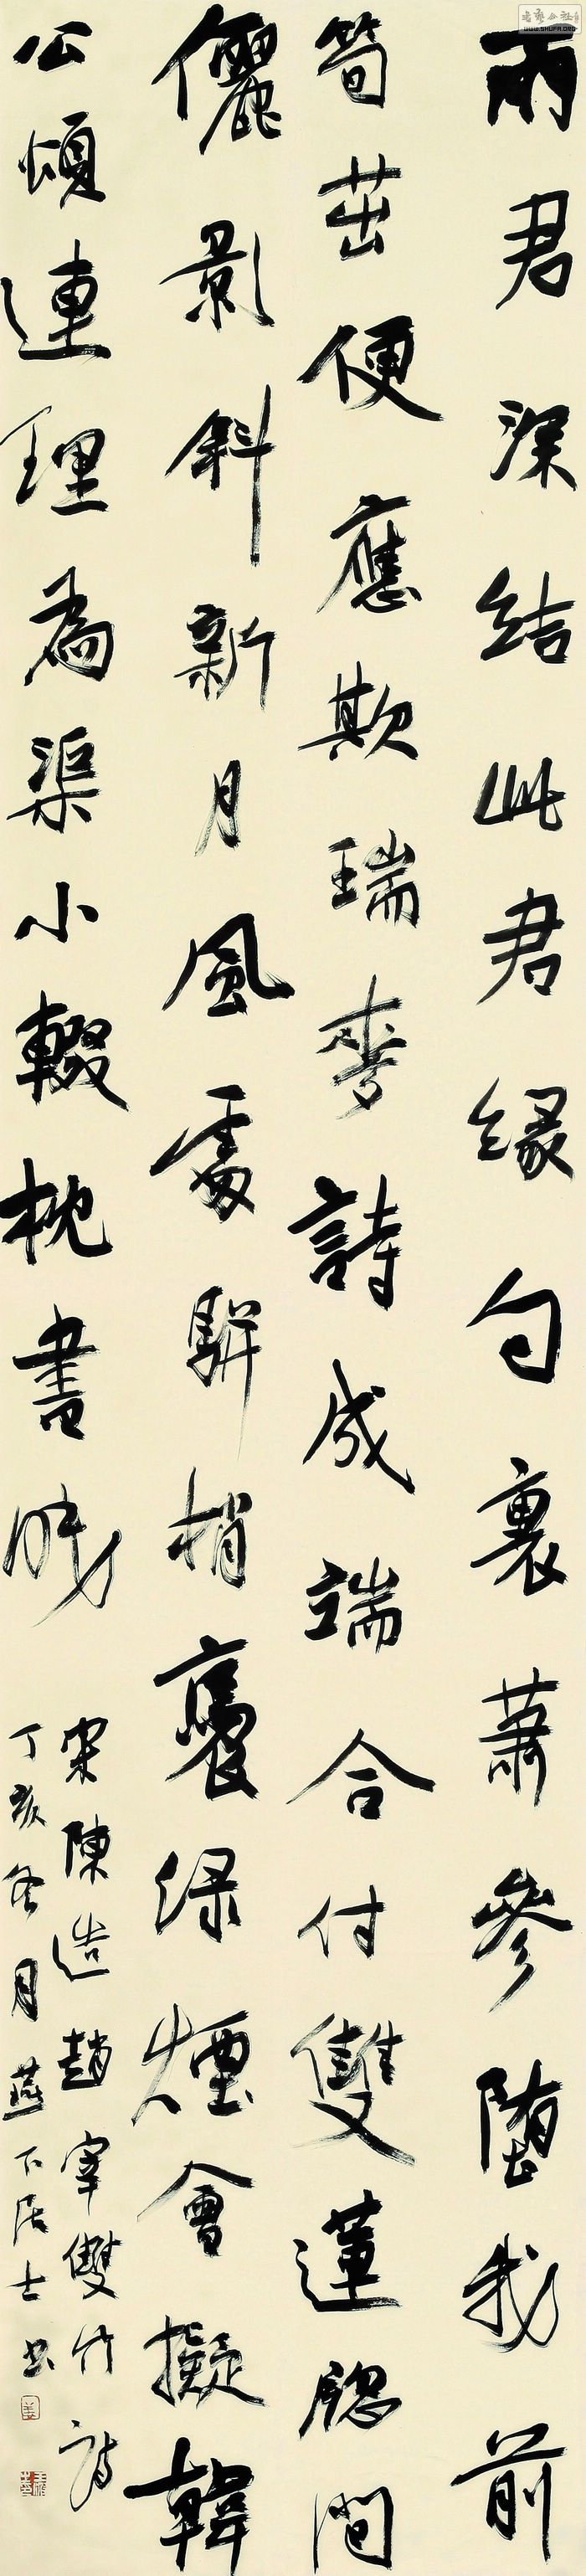 兩君深結此君緣句裏蕭參墮我前
筍茁便應欺瑞麥詩成端合付雙蓮牕間
儷影斜新月風處駢梢褭綠煙會擬韓
公頌連理為渠小輟枕書眠
宋陳造趙宰雙竹詩
丁亥冬月燕下居士書
WWW.SHUFA.ORG